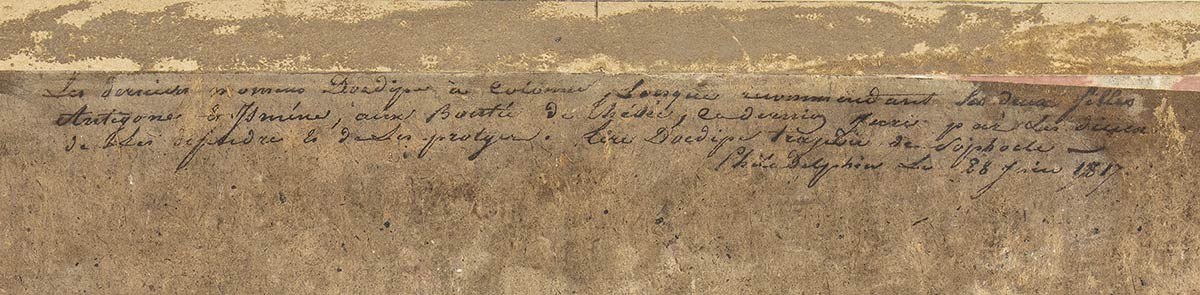 Les derniers momens Doedipe à Colonne, Lorsque recommandant Ses deux filles
Antigone & Ismène, aux Bonté de Thésée, Ce dernier jure par Les dieux
de Les défendre & de Les protéger. tiré Doedipe tragédie de Sophocle —
Philadelphie Le 28 1817.